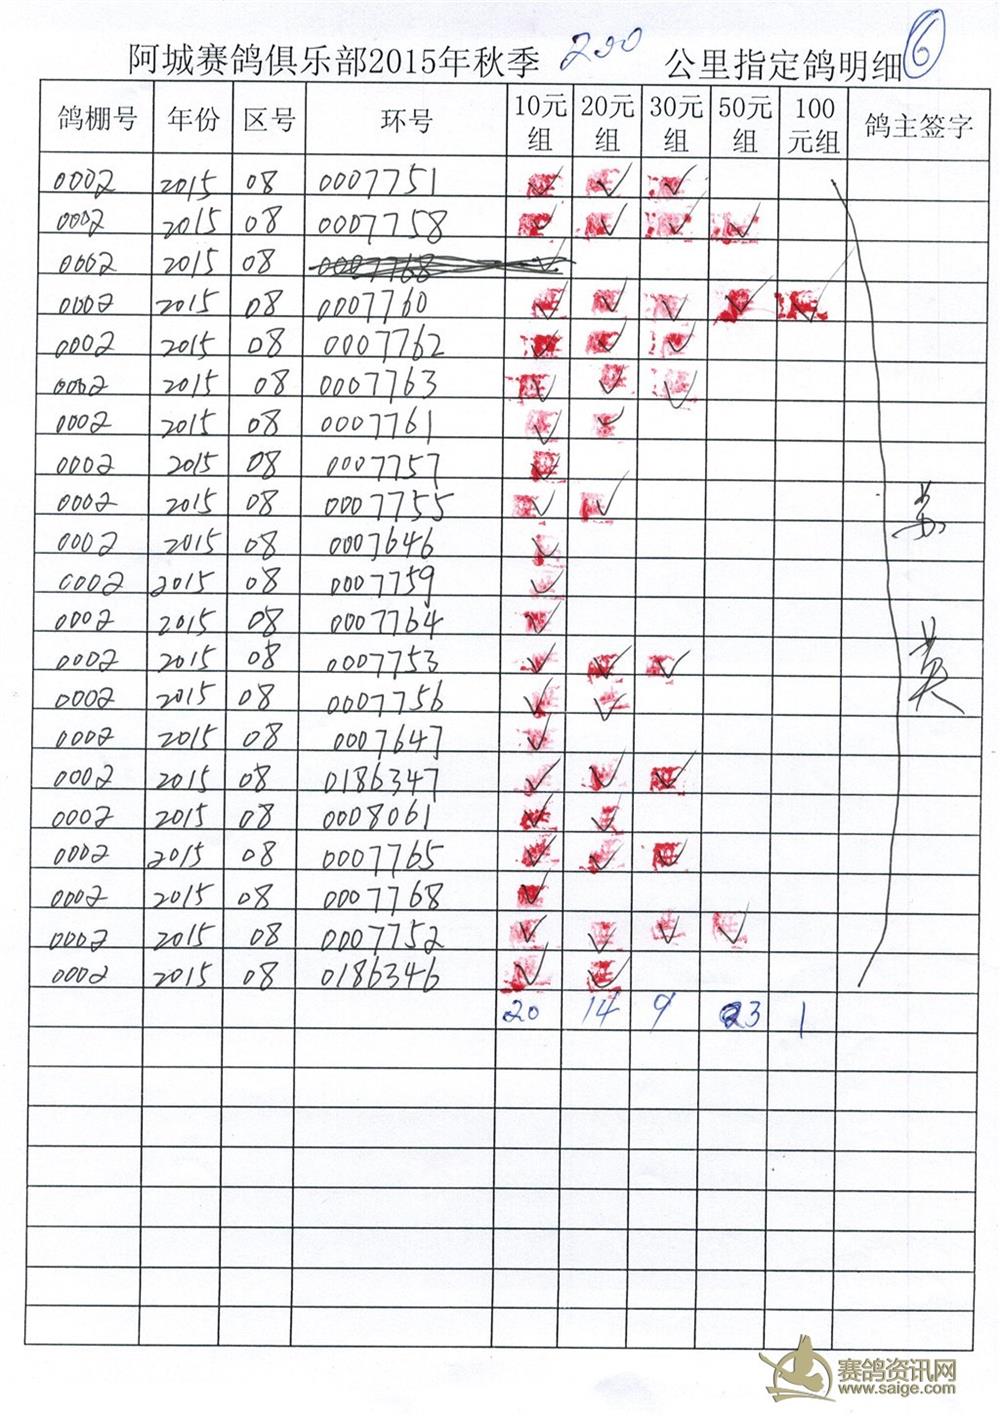 阿城赛鸽俱乐部2015年秋季 200 公里指定鸽明细 6
鸽棚号 年份 区号 环号 10元组 20元组 30元组 50元组 100元组 鸽主签字
0002 2015 08 0007751 ✓ ✓ ✓
0002 2015 08 0007758 ✓ ✓ ✓ ✓
0002 2015 08 0007768 ✓
0002 2015 08 0007760 ✓ ✓ ✓ ✓ ✓
0002 2015 08 0007762 ✓ ✓ ✓
0002 2015 08 0007763 ✓ ✓ ✓
0002 2015 08 0007761 ✓ ✓
0002 2015 08 0007757 ✓
0002 2015 08 0007755 ✓ ✓
0002 2015 08 0007646 ✓
0002 2015 08 0007759 ✓
0002 2015 08 0007764 ✓
0002 2015 08 0007753 ✓ ✓ ✓
0002 2015 08 0007756 ✓ ✓
0002 2015 08 0007647 ✓
0002 2015 08 0186347 ✓ ✓ ✓
0002 2015 08 0008061 ✓ ✓
0002 2015 08 0007765 ✓ ✓ ✓
0002 2015 08 0007768 ✓
0002 2015 08 0007752 ✓ ✓ ✓ ✓
0002 2015 08 0186346 ✓ ✓
20 14 9 3 1
赛鸽资讯网
www.saige.com